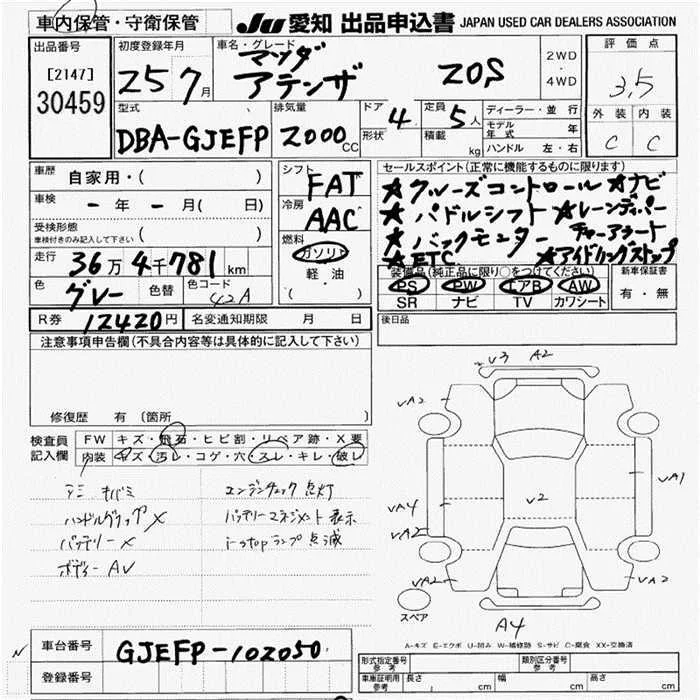 車内保管・守衛保管
JU 愛知 出品申込書 JAPAN USED CAR DEALERS ASSOCIATION
出品番号
[2147]
30459
初度登録年月
25 7月
車名・グレード
マツダ
アテンザ 20S
2WD
・
4WD
評価点
3.5
外装 内装
C C
型式
DBA-GJEFP
排気量
2000 CC
ドア 4
形状
定員 5人
積載 kg
ディーラー・並行
モデル年式 年
ハンドル 左・右
車歴
自家用・( )
車検
- 年 - 月( 日)
受検形態
車検付きのみ記入して下さい ( )
走行
36万4千781km
色
グレー
色替
色コード
42A
シフト
FAT
冷房
AAC
燃料
ガソリン
軽・油
( )
セールスポイント(正常に機能するものに限ります)
★クルーズコントロール ★ナビ
★パドルシフト ★レーンディパー
★バックモニター チャーアラート
★ETC ★アイドリングストップ
装備品(純正品に限り○をつけてください)
PS PW エアB AW
SR ナビ TV カワシート
新車保証書
有・無
R券 12420円
名変通知期限 月 日
後日品
注意事項申告欄(不具合内容等は具体的に記入して下さい)
修復歴 有 (箇所 )
検査員
記入欄
FW キズ・飛石・ヒビ割・リペア跡・X要
内装 キズ・汚レ・コゲ・穴・スレ・キレ・破レ
ハンドルグリップ X
バッテリー X
ボディー AV
エンジンチェック 点灯
バッテリーマネジメント 表示
i-stopランプ 点滅
V3 A2
VA2
VA1
V2
VA4
VA2
VA2
VA2
A4
スペア
A-キズ E-エクボ U-凹み W-補修跡 S-サビ C-腐食 XX-交換済
N
車台番号
GJEFP-102050
登録番号
形式指定番号
参考
類別区分番号
参考
車庫証明用
参考
長さ cm
幅 cm
高さ cm